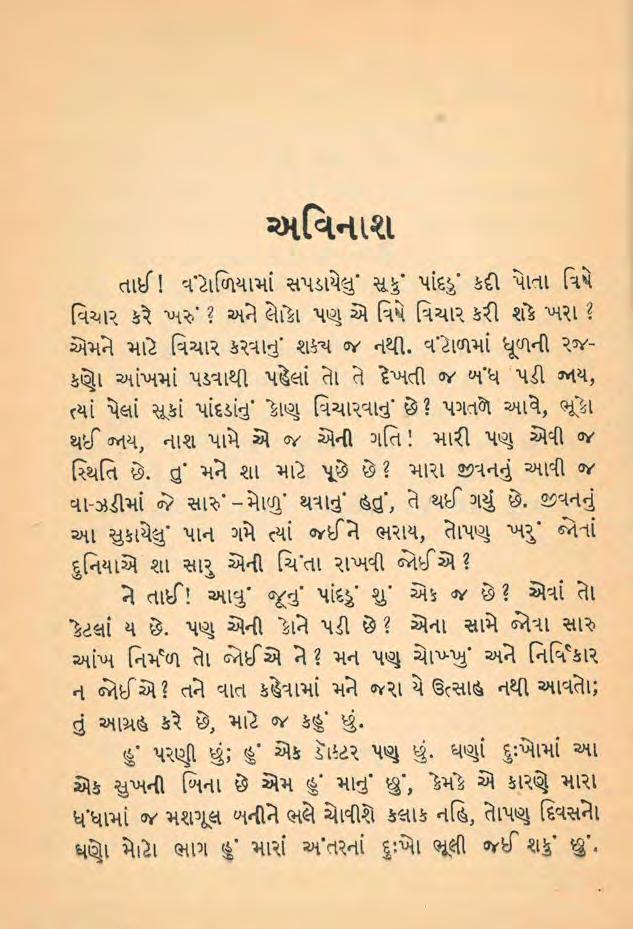 અવિનાશ
તાઈ! વંટોળિયામાં સપડાયેલું સૂકું પાંદડું કદી પોતા વિષે
વિચાર કરે ખરું? અને લોકો પણ એ વિષે વિચાર કરી શકે ખરા?
એમને માટે વિચાર કરવાનું શક્ય જ નથી. વંટોળમાં ધૂળની રજ-
કણો આંખમાં પડવાથી પહેલાં તો તે દેખતી જ બંધ પડી જાય,
ત્યાં પેલાં સૂકાં પાંદડાંનું કોણ વિચારવાનું છે? પગતળે આવે, ભૂકો
થઈ જાય, નાશ પામે એ જ એની ગતિ! મારી પણ એવી જ
સ્થિતિ છે. તું મને શા માટે પૂછે છે? મારા જીવનનું આવી જ
વા-ઝડીમાં જે સારું–મોળું થવાનું હતું, તે થઈ ગયું છે. જીવનનું
આ સુકાયેલું પાન ગમે ત્યાં જઈને ભરાય, તોપણ ખરું જોતાં
દુનિયાએ શા સારુ એની ચિંતા રાખવી જોઈએ?
ને તાઈ! આવું જૂનું પાંદડું શું એક જ છે? એવાં તો
કેટલાં ય છે. પણ એની કોને પડી છે? એના સામે જોવા સારુ
આંખ નિર્મળ તો જોઈએ ને? મન પણ ચોખ્ખું અને નિર્વિકાર
ન જોઈએ? તને વાત કહેવામાં મને જરા યે ઉત્સાહ નથી આવતો;
તું આગ્રહ કરે છે, માટે જ કહું છું.
હું પરણી છું; હું એક ડૉક્ટર પણ છું. ઘણાં દુઃખોમાં આ
એક સુખની બિના છે એમ હું માનું છું, કેમકે એ કારણે મારા
ધંધામાં જ મશગૂલ બનીને ભલે ચોવીશે કલાક નહિ, તોપણ દિવસનો
ઘણો મોટો ભાગ હું મારાં અંતરનાં દુઃખો ભૂલી જઈ શકું છું.